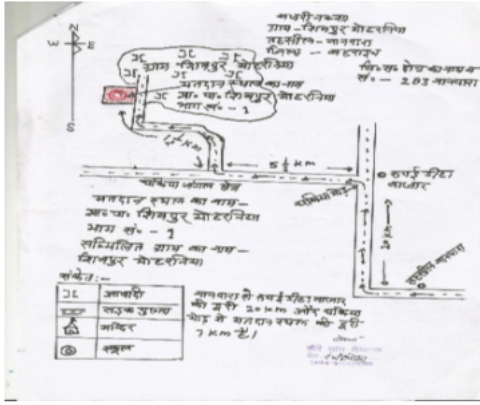 नजरी नक्शा
ग्राम - शिवपुर मोहरनिया
तहसील - नानपारा
जिला - बहराइच
वि० स० क्षेत्र का नाम व
सं० - 283 नानपारा
N
W E
S
ग्राम शिवपुर मोहरनिया
मतदान स्थल का नाम
प्रा० पा० शिवपुर मोहरनिया
भाग सं० - 1
1½ KM
5½ KM
चकिया मोड़
रुपईडीहा
बाजार
चकिया जंगल क्षेत्र
मतदान स्थल का नाम -
प्रा० पा० शिवपुर मोहरनिया
भाग सं० - 1
सम्मिलित ग्राम का नाम -
शिवपुर मोहरनिया
संकेत :-
आबादी
मन्दिर
स्कूल
नानपारा से रुपईडीहा बाजार
की दूरी 20 KM और चकिया
मोड़ से मतदान स्थल की दूरी
7 KM है।